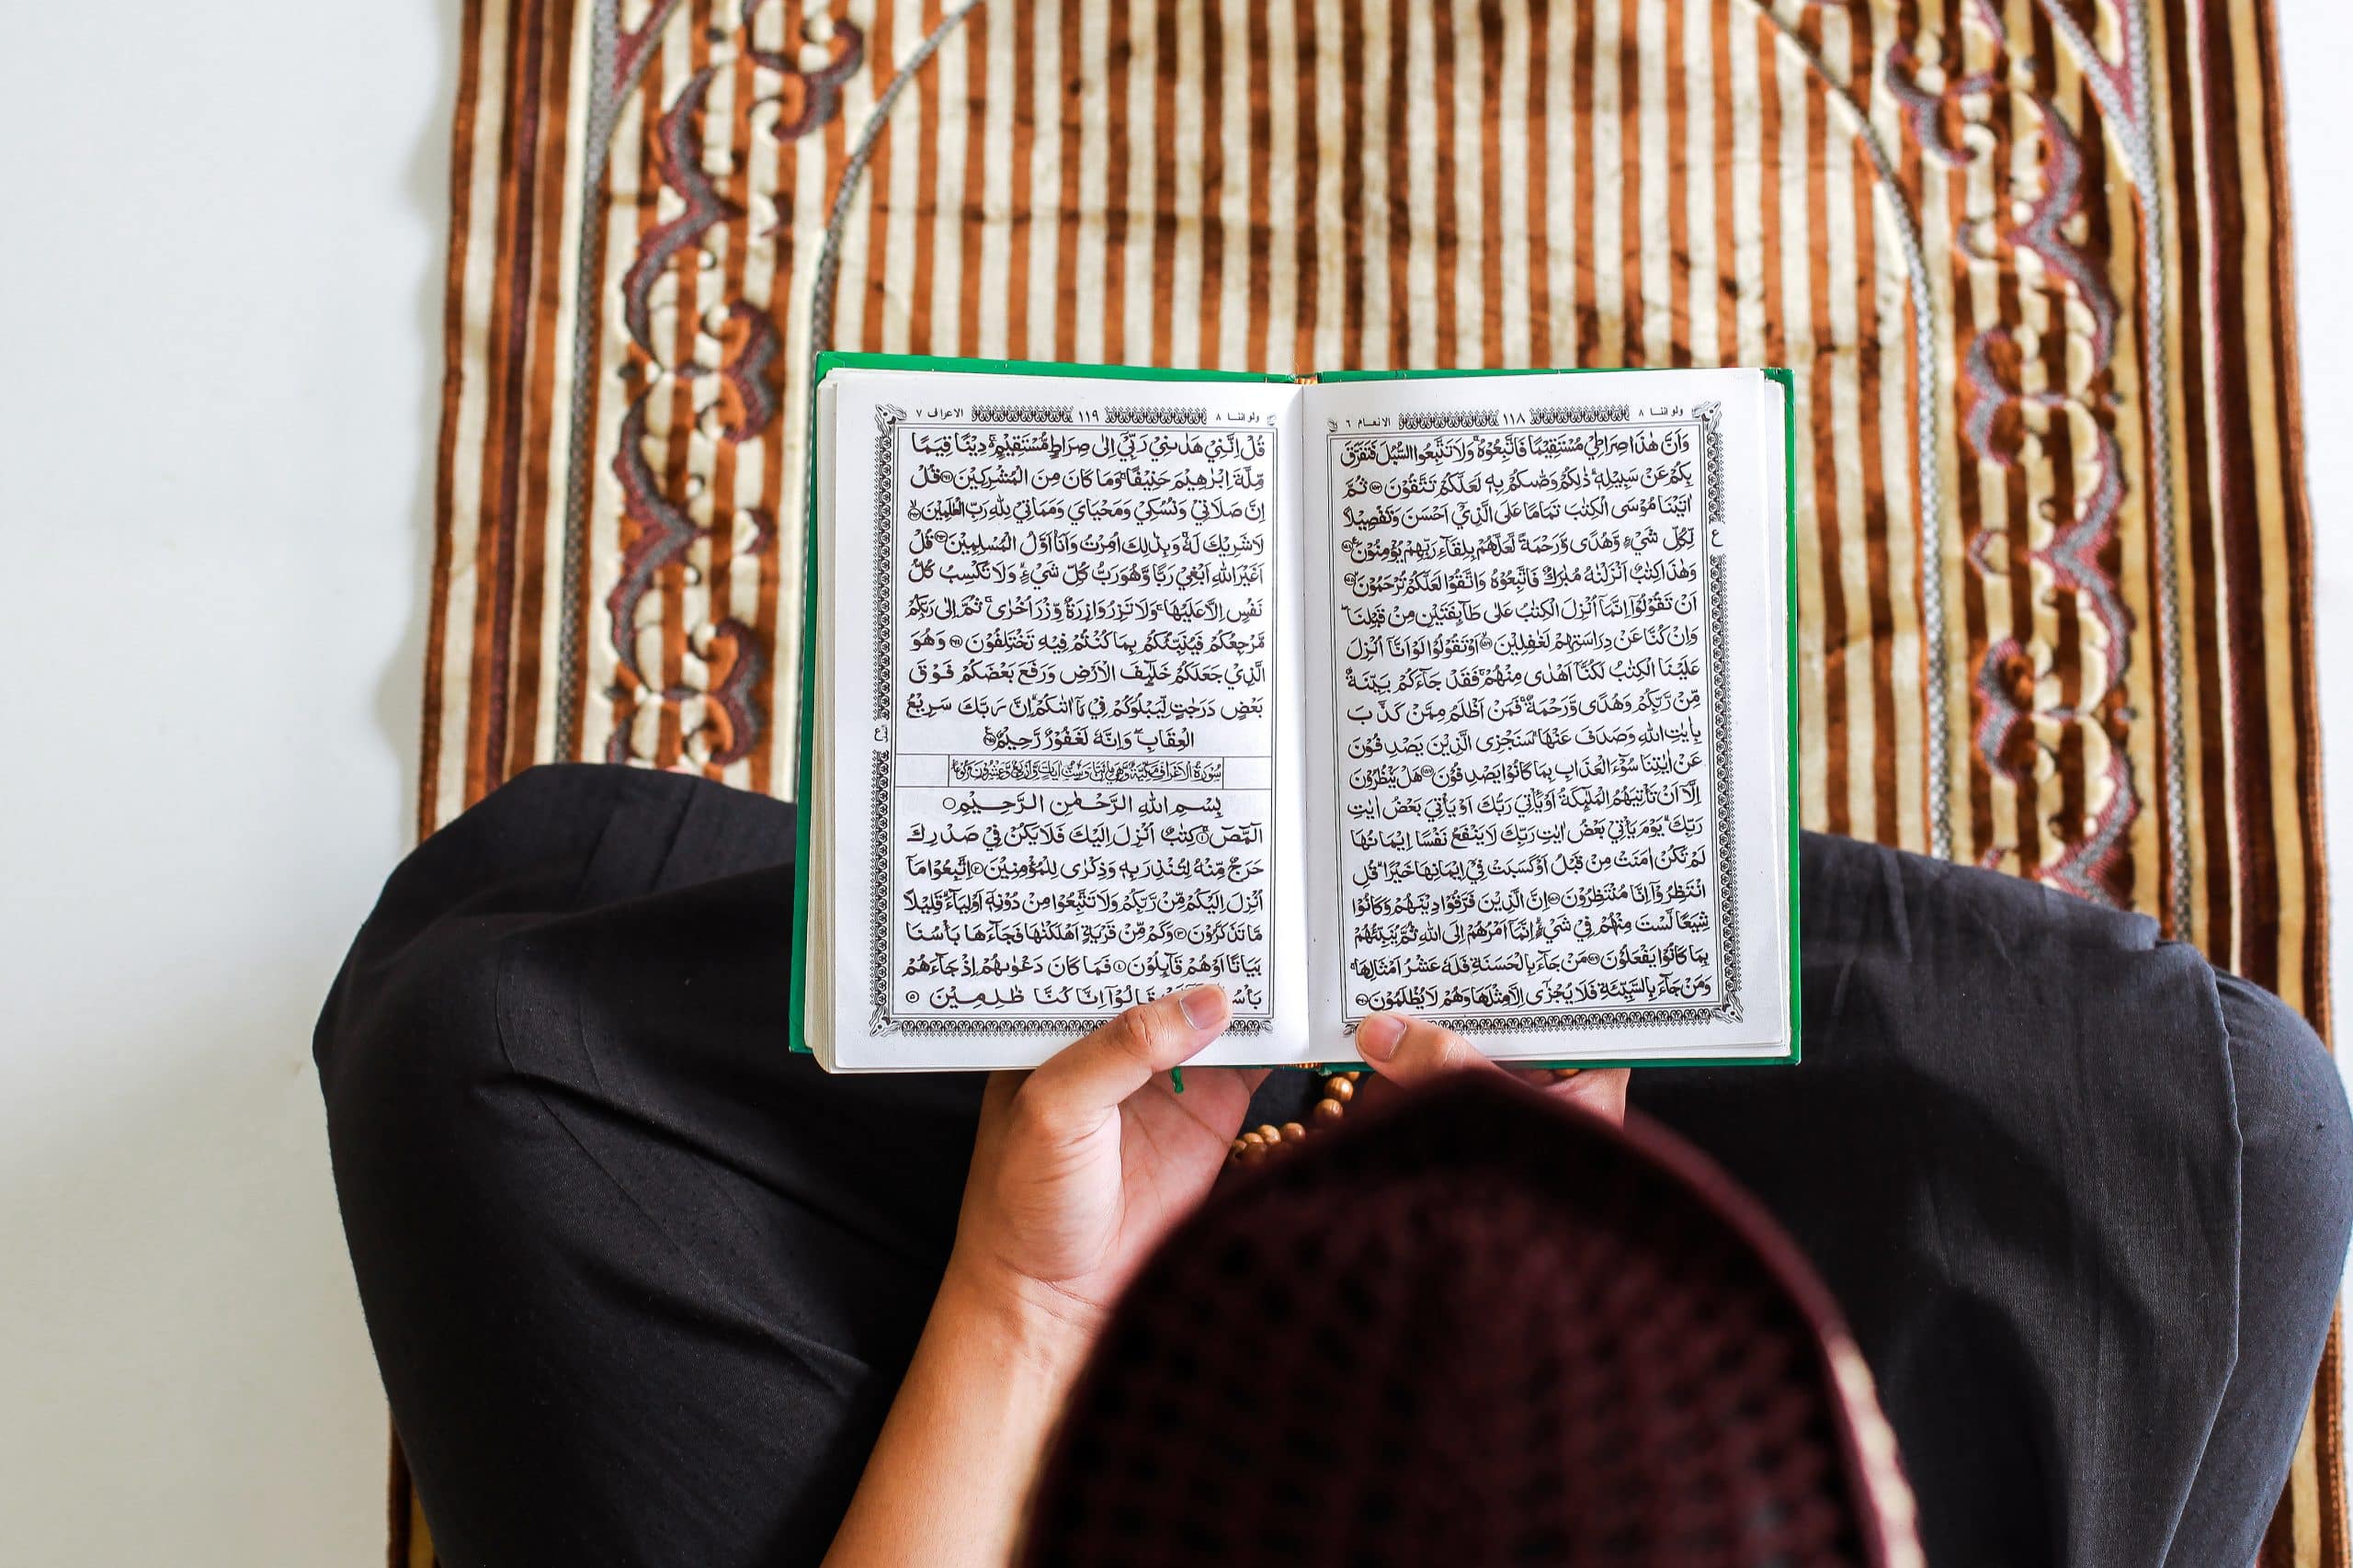 ولواننا ٨ ١١٨ الانعام ٦
وَاَنَّ هٰذَا صِرَاطِيْ مُسْتَقِيْمًا فَاتَّبِعُوْهُ ۚ وَلَا تَتَّبِعُوا السُّبُلَ فَتَفَرَّقَ
بِكُمْ عَنْ سَبِيْلِهٖ ۗ ذٰلِكُمْ وَصّٰىكُمْ بِهٖ لَعَلَّكُمْ تَتَّقُوْنَ ۝ ثُمَّ
اٰتَيْنَا مُوْسَى الْكِتٰبَ تَمَامًا عَلَى الَّذِيْٓ اَحْسَنَ وَتَفْصِيْلًا
لِّكُلِّ شَيْءٍ وَّهُدًى وَّرَحْمَةً لَّعَلَّهُمْ بِلِقَآءِ رَبِّهِمْ يُؤْمِنُوْنَ ۝ ع
وَهٰذَا كِتٰبٌ اَنْزَلْنٰهُ مُبٰرَكٌ فَاتَّبِعُوْهُ وَاتَّقُوْا لَعَلَّكُمْ تُرْحَمُوْنَ ۝
اَنْ تَقُوْلُوْٓا اِنَّمَآ اُنْزِلَ الْكِتٰبُ عَلٰى طَآئِفَتَيْنِ مِنْ قَبْلِنَا
وَاِنْ كُنَّا عَنْ دِرَاسَتِهِمْ لَغٰفِلِيْنَ ۝ اَوْ تَقُوْلُوْا لَوْ اَنَّآ اُنْزِلَ
عَلَيْنَا الْكِتٰبُ لَكُنَّآ اَهْدٰى مِنْهُمْ ۚ فَقَدْ جَآءَكُمْ بَيِّنَةٌ
مِّنْ رَّبِّكُمْ وَهُدًى وَّرَحْمَةٌ ۚ فَمَنْ اَظْلَمُ مِمَّنْ كَذَّبَ
بِاٰيٰتِ اللّٰهِ وَصَدَفَ عَنْهَا ۗ سَنَجْزِى الَّذِيْنَ يَصْدِفُوْنَ
عَنْ اٰيٰتِنَا سُوْٓءَ الْعَذَابِ بِمَا كَانُوْا يَصْدِفُوْنَ ۝ هَلْ يَنْظُرُوْنَ
اِلَّآ اَنْ تَأْتِيَهُمُ الْمَلٰٓئِكَةُ اَوْ يَأْتِيَ رَبُّكَ اَوْ يَأْتِيَ بَعْضُ اٰيٰتِ
رَبِّكَ ۗ يَوْمَ يَأْتِيْ بَعْضُ اٰيٰتِ رَبِّكَ لَا يَنْفَعُ نَفْسًا اِيْمَانُهَا
لَمْ تَكُنْ اٰمَنَتْ مِنْ قَبْلُ اَوْ كَسَبَتْ فِيْٓ اِيْمَانِهَا خَيْرًا ۗ قُلِ
انْتَظِرُوْٓا اِنَّا مُنْتَظِرُوْنَ ۝ اِنَّ الَّذِيْنَ فَرَّقُوْا دِيْنَهُمْ وَكَانُوْا
شِيَعًا لَّسْتَ مِنْهُمْ فِيْ شَيْءٍ ۗ اِنَّمَآ اَمْرُهُمْ اِلَى اللّٰهِ ثُمَّ يُنَبِّئُهُمْ
بِمَا كَانُوْا يَفْعَلُوْنَ ۝ مَنْ جَآءَ بِالْحَسَنَةِ فَلَهٗ عَشْرُ اَمْثَالِهَا ۚ
وَمَنْ جَآءَ بِالسَّيِّئَةِ فَلَا يُجْزٰٓى اِلَّا مِثْلَهَا وَهُمْ لَا يُظْلَمُوْنَ ۝
ولواننا ٨ ١١٩ الاعراف ٧
قُلْ اِنَّنِيْ هَدٰىنِيْ رَبِّيْٓ اِلٰى صِرَاطٍ مُّسْتَقِيْمٍ ۚ دِيْنًا قِيَمًا
مِّلَّةَ اِبْرٰهِيْمَ حَنِيْفًا ۚ وَمَا كَانَ مِنَ الْمُشْرِكِيْنَ ۝ قُلْ
اِنَّ صَلَاتِيْ وَنُسُكِيْ وَمَحْيَايَ وَمَمَاتِيْ لِلّٰهِ رَبِّ الْعٰلَمِيْنَ ۝
لَا شَرِيْكَ لَهٗ ۚ وَبِذٰلِكَ اُمِرْتُ وَاَنَا۠ اَوَّلُ الْمُسْلِمِيْنَ ۝ قُلْ
اَغَيْرَ اللّٰهِ اَبْغِيْ رَبًّا وَّهُوَ رَبُّ كُلِّ شَيْءٍ ۗ وَلَا تَكْسِبُ كُلُّ
نَفْسٍ اِلَّا عَلَيْهَا ۚ وَلَا تَزِرُ وَازِرَةٌ وِّزْرَ اُخْرٰى ۚ ثُمَّ اِلٰى رَبِّكُمْ
مَّرْجِعُكُمْ فَيُنَبِّئُكُمْ بِمَا كُنْتُمْ فِيْهِ تَخْتَلِفُوْنَ ۝ وَهُوَ
الَّذِيْ جَعَلَكُمْ خَلٰٓئِفَ الْاَرْضِ وَرَفَعَ بَعْضَكُمْ فَوْقَ
بَعْضٍ دَرَجٰتٍ لِّيَبْلُوَكُمْ فِيْ مَآ اٰتٰىكُمْ ۗ اِنَّ رَبَّكَ سَرِيْعُ
الْعِقَابِ ۖ وَاِنَّهٗ لَغَفُوْرٌ رَّحِيْمٌ ۝
سُوْرَةُ الْاَعْرَافِ مَكِّيَّةٌ
بِسْمِ اللّٰهِ الرَّحْمٰنِ الرَّحِيْمِ ۝
الٓمّٓصٓ ۝ كِتٰبٌ اُنْزِلَ اِلَيْكَ فَلَا يَكُنْ فِيْ صَدْرِكَ
حَرَجٌ مِّنْهُ لِتُنْذِرَ بِهٖ وَذِكْرٰى لِلْمُؤْمِنِيْنَ ۝ اِتَّبِعُوْا مَآ
اُنْزِلَ اِلَيْكُمْ مِّنْ رَّبِّكُمْ وَلَا تَتَّبِعُوْا مِنْ دُوْنِهٖٓ اَوْلِيَآءَ ۗ قَلِيْلًا
مَّا تَذَكَّرُوْنَ ۝ وَكَمْ مِّنْ قَرْيَةٍ اَهْلَكْنٰهَا فَجَآءَهَا بَأْسُنَا
بَيَاتًا اَوْ هُمْ قَآئِلُوْنَ ۝ فَمَا كَانَ دَعْوٰىهُمْ اِذْ جَآءَهُمْ
قَالُوْٓا اِنَّا كُنَّا ظٰلِمِيْنَ ۝